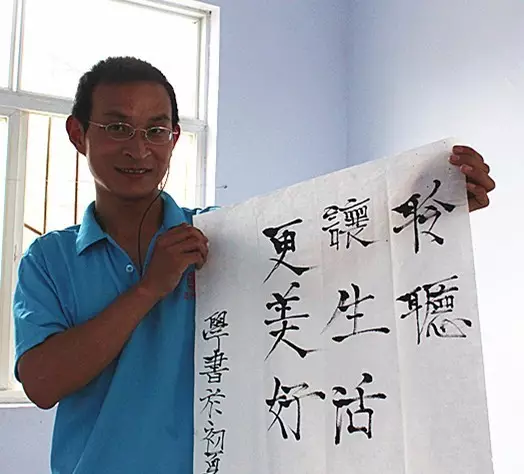 聆聽
讓生活
更美好
學書於初